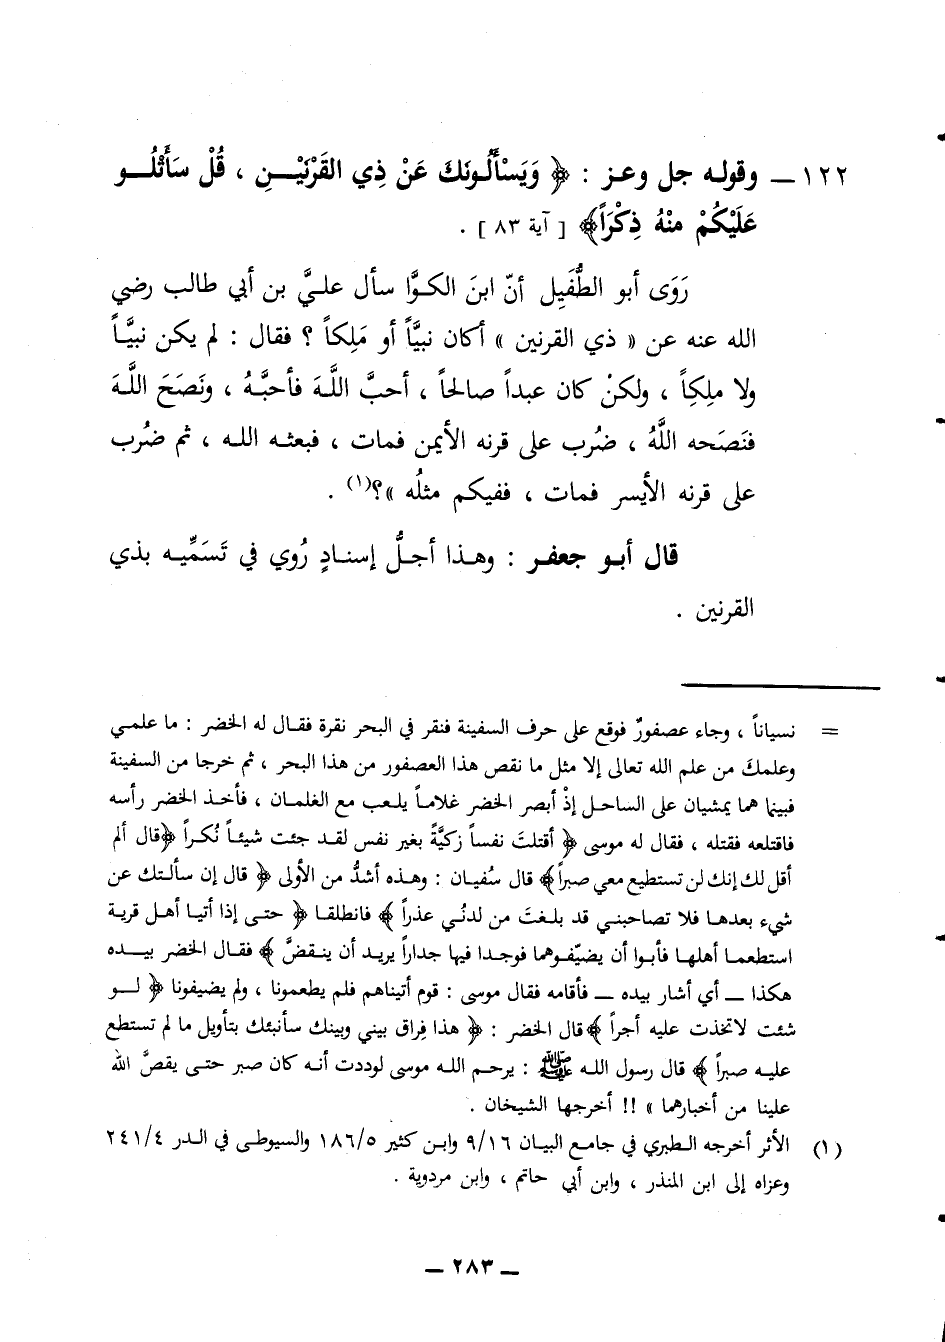 ١٢٢ ــ وقوله جل وعز : ﴿ وَيَسْأَلُونَكَ عَنْ ذِي القَرْنَيْنِ ، قُلْ سَأَتْلُو
عَلَيْكُمْ مِنْهُ ذِكْرَاً﴾ [ آية ٨٣ ] .
رَوَى أبو الطُّفَيل أنّ ابنَ الكوَّا سأل عليَّ بن أبي طالب رضي
الله عنه عن « ذي القرنين » أكان نبيَّاً أو مَلِكاً ؟ فقال : لم يكن نبيَّاً
ولا ملِكاً ، ولكنْ كان عبداً صالحاً ، أحبَّ اللَّهَ فأحبَّهُ ، ونَصَحَ اللَّهَ
فنَصَحه اللَّهُ ، ضُرب على قرنه الأيمن فمات ، فبعثه الله ، ثم ضُرب
على قرنه الأيسر فمات ، ففيكم مثلُه »؟(١) .
قال أبو جعفر : وهذا أجلُّ إسنادٍ رُوي في تَسَمِّيه بذي
القرنين .
= نسياناً ، وجاء عصفورٌ فوقع على حرف السفينة فنقر في البحر نقرة فقال له الخضر : ما علمي
وعلمكَ من علم الله تعالى إلا مثل ما نقص هذا العصفور من هذا البحر ، ثم خرجا من السفينة
فبينما هما يمشيان على الساحل إذْ أبصر الخضر غلاماً يلعب مع الغلمان ، فأخذ الخضر رأسه
فاقتلعه فقتله ، فقال له موسى ﴿ أقتلتَ نفساً زكيَّةً بغير نفس لقد جئت شيئاً نُكراً ﴿قال ألم
أقل لك إنك لن تستطيع معي صبراً﴾ قال سُفيان : وهذه أشدُّ من الأولى ﴿ قال إن سألتك عن
شيء بعدها فلا تصاحبني قد بلغتَ من لدنّي عذراً ﴾ فانطلقا ﴿ حتى إذا أتيا أهل قرية
استطعما أهلها فأبوا أن يضيّفوهما فوجدا فيها جداراً يريد أن ينقضَّ ﴾ فقال الخضر بيده
هكذا ــ أي أشار بيده ــ فأقامه فقال موسى : قوم أتيناهم فلم يطعمونا ، ولم يضيفونا ﴿ لو
شئت لاتخذت عليه أجراً ﴾ قال الخضر : ﴿ هذا فِراق بيني وبينك سأنبئك بتأويل ما لم تستطع
عليه صبراً ﴾ قال رسول الله ﷺ : يرحم الله موسى لوددت أنه كان صبر حتى يقصَّ الله
علينا من أخبارهما » !! أخرجها الشيخان .
(١) الأثر أخرجه الطبري في جامع البيان ٩/١٦ وابن كثير ١٨٦/٥ والسيوطى في الدر ٢٤١/٤
وعزاه إلى ابن المنذر ، وابن أبي حاتم ، وابن مردوية .
ــ ٢٨٣ ــ